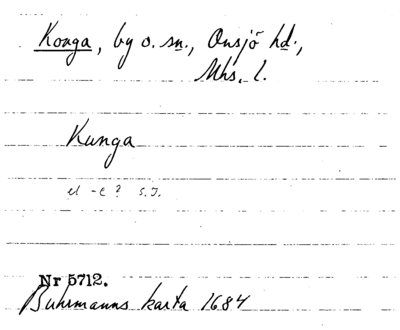 Konga, by o. sn., Onsjö hd.,
Mhs. l.
Kunga
el -e? S.I.
Nr 5712.
Buhrmanns karta 1684